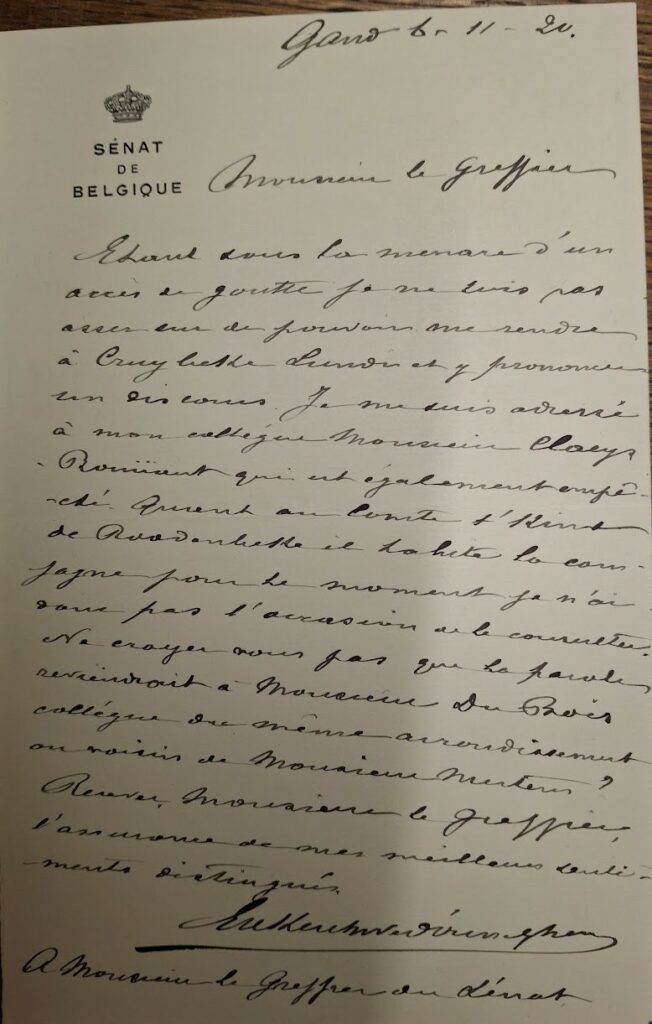 Gand 6 - 11 - 20.
SÉNAT
DE
BELGIQUE
Monsieur le Greffier
Etant sous la menace d'un
accès de goutte je ne suis pas
assez sur de pouvoir me rendre
à Cruybeke Lundi et y prononcer
un discours. Je me suis adressé
à mon collègue Monsieur Claeys
- Bouüaert qui est également empê-
-ché. Quant au Comte t'Kint
de Roodenbeke il habite la cam-
pagne pour le moment je n'ai
donc pas l'occasion de le consulter.
Ne croyez vous pas que la parole
reviendrait à Monsieur Du Bois
collègue du même arrondissement
ou voisin de Monsieur Mertens ?
Recevez, Monsieur le greffier,
l'assurance de mes meilleurs senti-
-ments distingués.
A Monsieur le Greffier du Sénat